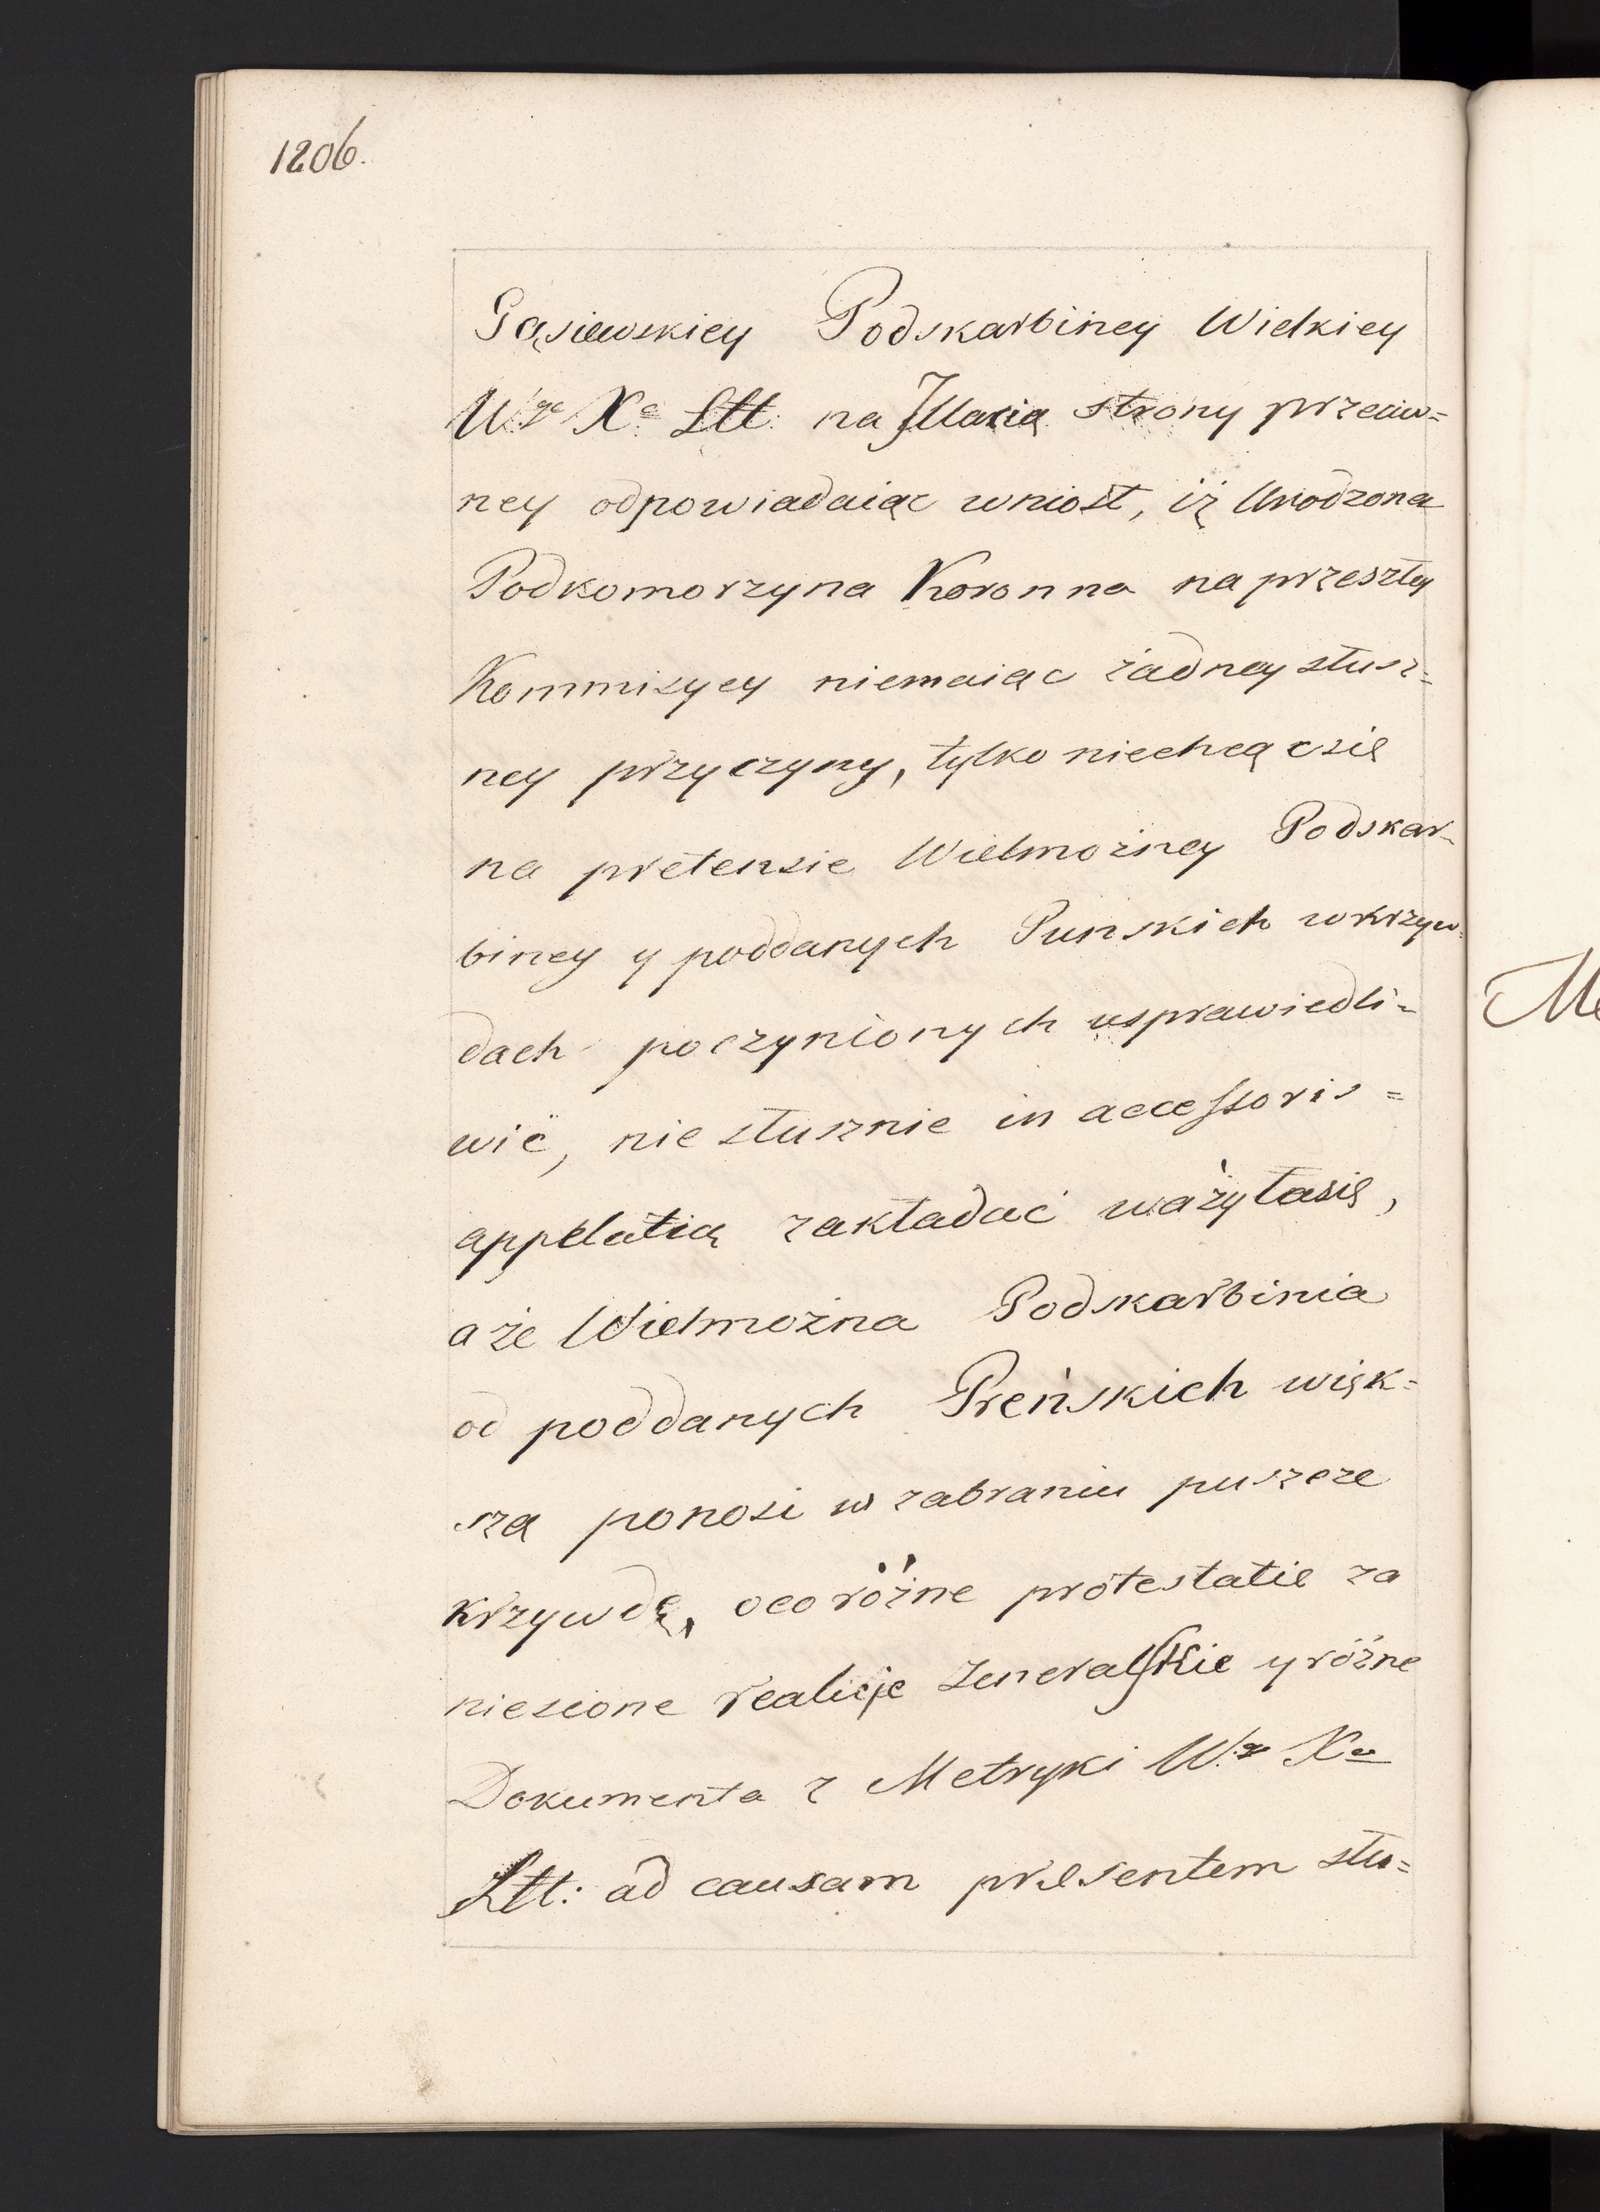 1206.
Gąsiewskiey Podskarbiney Wielkiey
Wgo Xa Litt: na Illacią strony przeciw=
ney odpowiadaiąc wniosł, iż Urodzona
Podkomorzyna Koronna na przeszłey
Kommisyey niemaiąc żadney słusz=
ney przyczyny, tylko niechcąc się
na pretensie Wielmożney Podskar=
biney y poddanych Puńskich w krzyw=
dach poczynionych usprawiedli=
wić, niesłusznie in accessoris=
appelatią zakładać ważyłasię,
aże Wielmożna Podskarbinia
od poddanych Preńskich więk=
szą ponosi w zabraniu puszcze
krzywdę, oco różne protestatie za
niesione realicje Ieneralskie y różne
Dokumenta z Metryki Wgo Xa
Litt: ad causam presentem słu=
Me